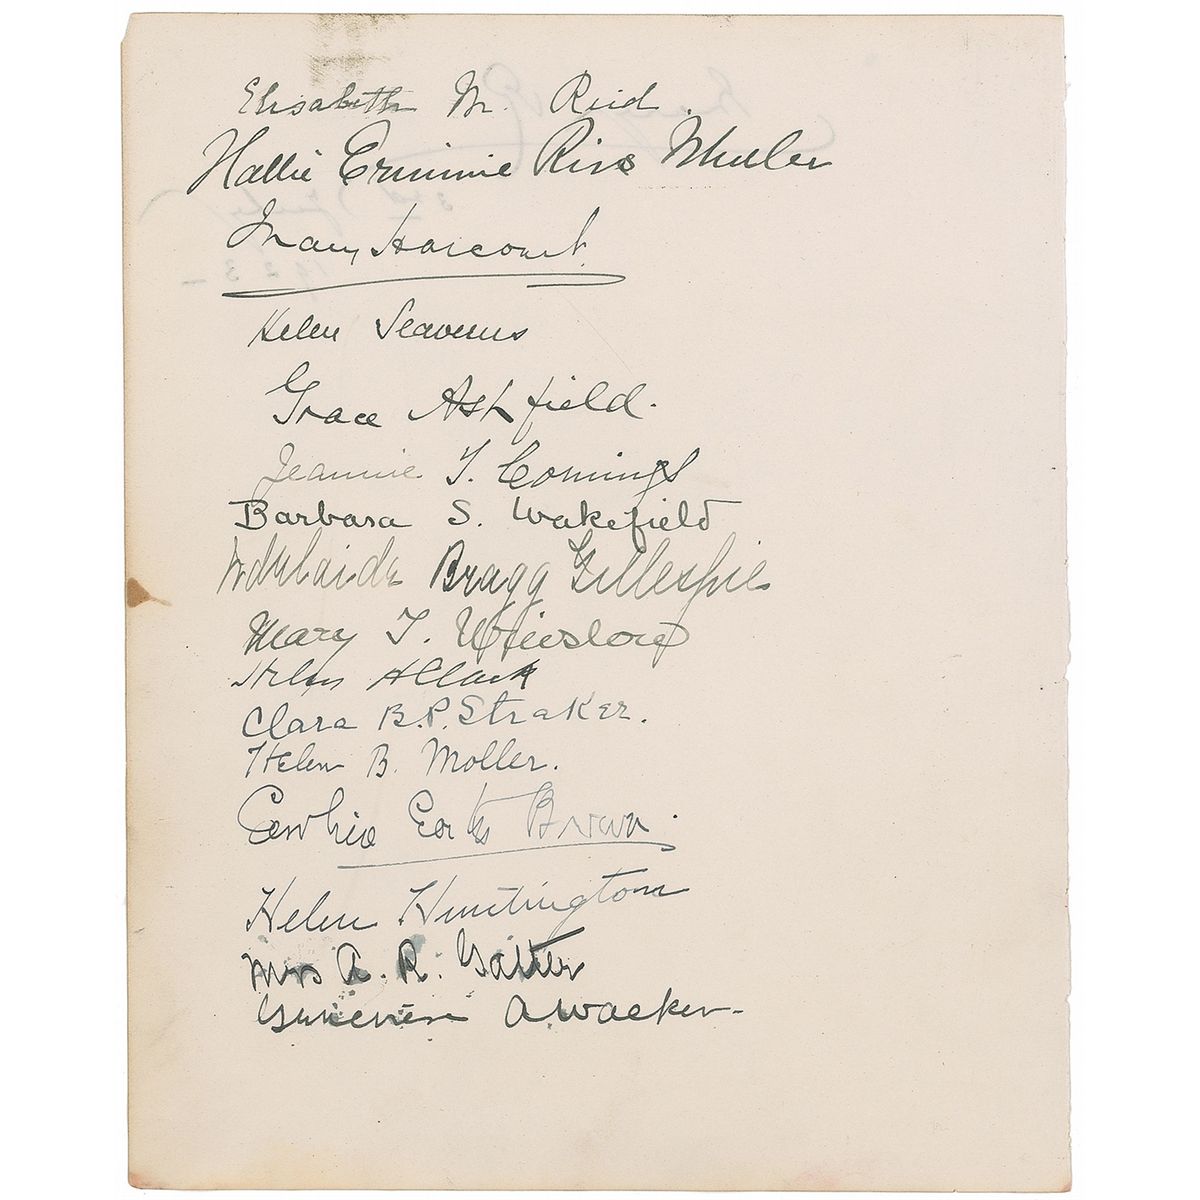 Elisabeth M. Reid
Hallie Erminie Rives Wheeler
Mary Harcourt.
Helen Seaverns
Grace Ashfield.
Jeannie T. Comings
Barbara S. Wakefield
Adelaide Bragg Gillespie
Mary T. Winslow
Helen A Clark
Clara B.P. Straker.
Helen B. Moller.
Brown.
Helen Huntington
Mrs A. R.
Genevieve A Walker-